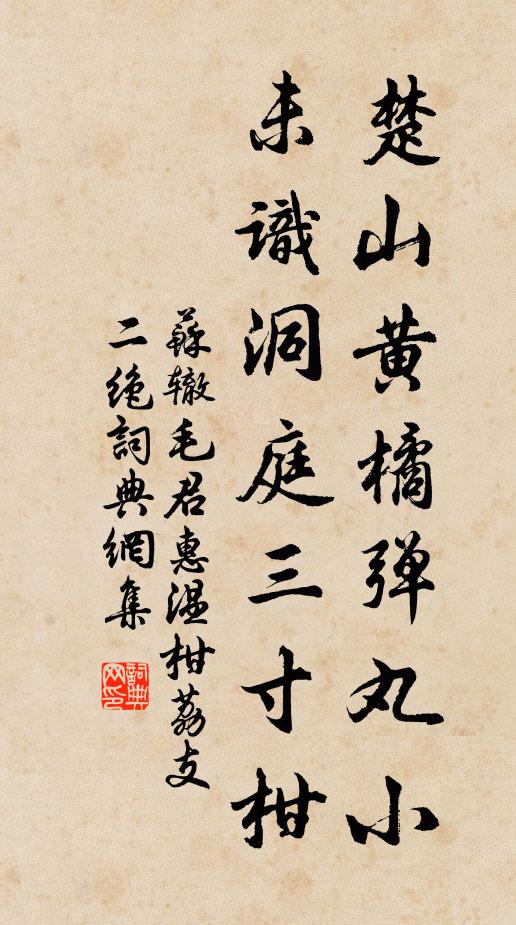 楚山黄橘弹丸小
未識洞庭三寸柑
蘇辙毛君惠温柑荔支
二绝詞典網集
詞典
网印